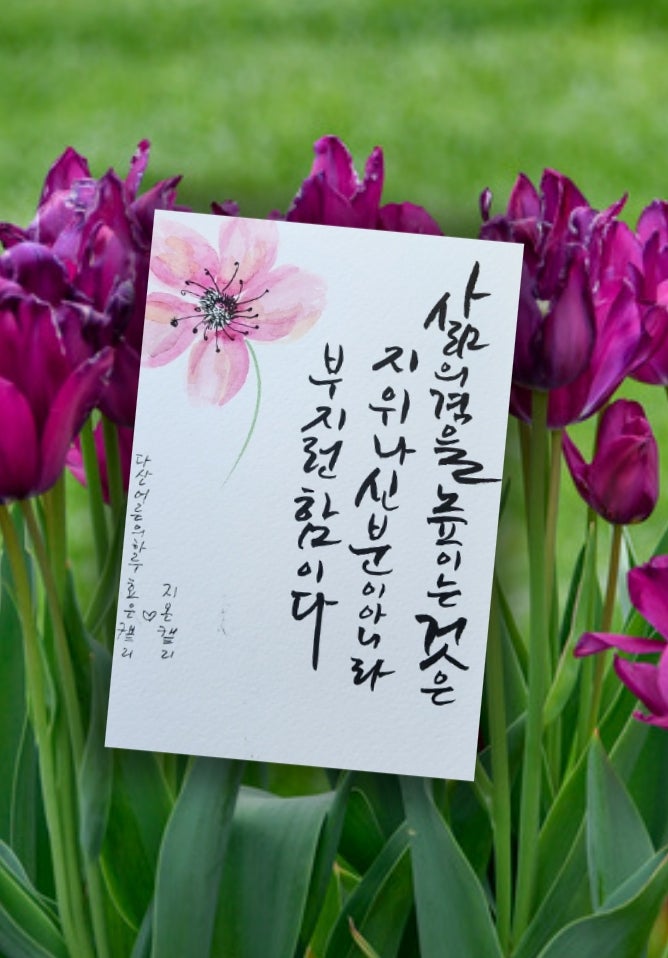 삶의 격을 높이는 것은
지위나 신분이 아니라
부지런함이다
다산어른의하루 효은캘리
♡
지온캘리